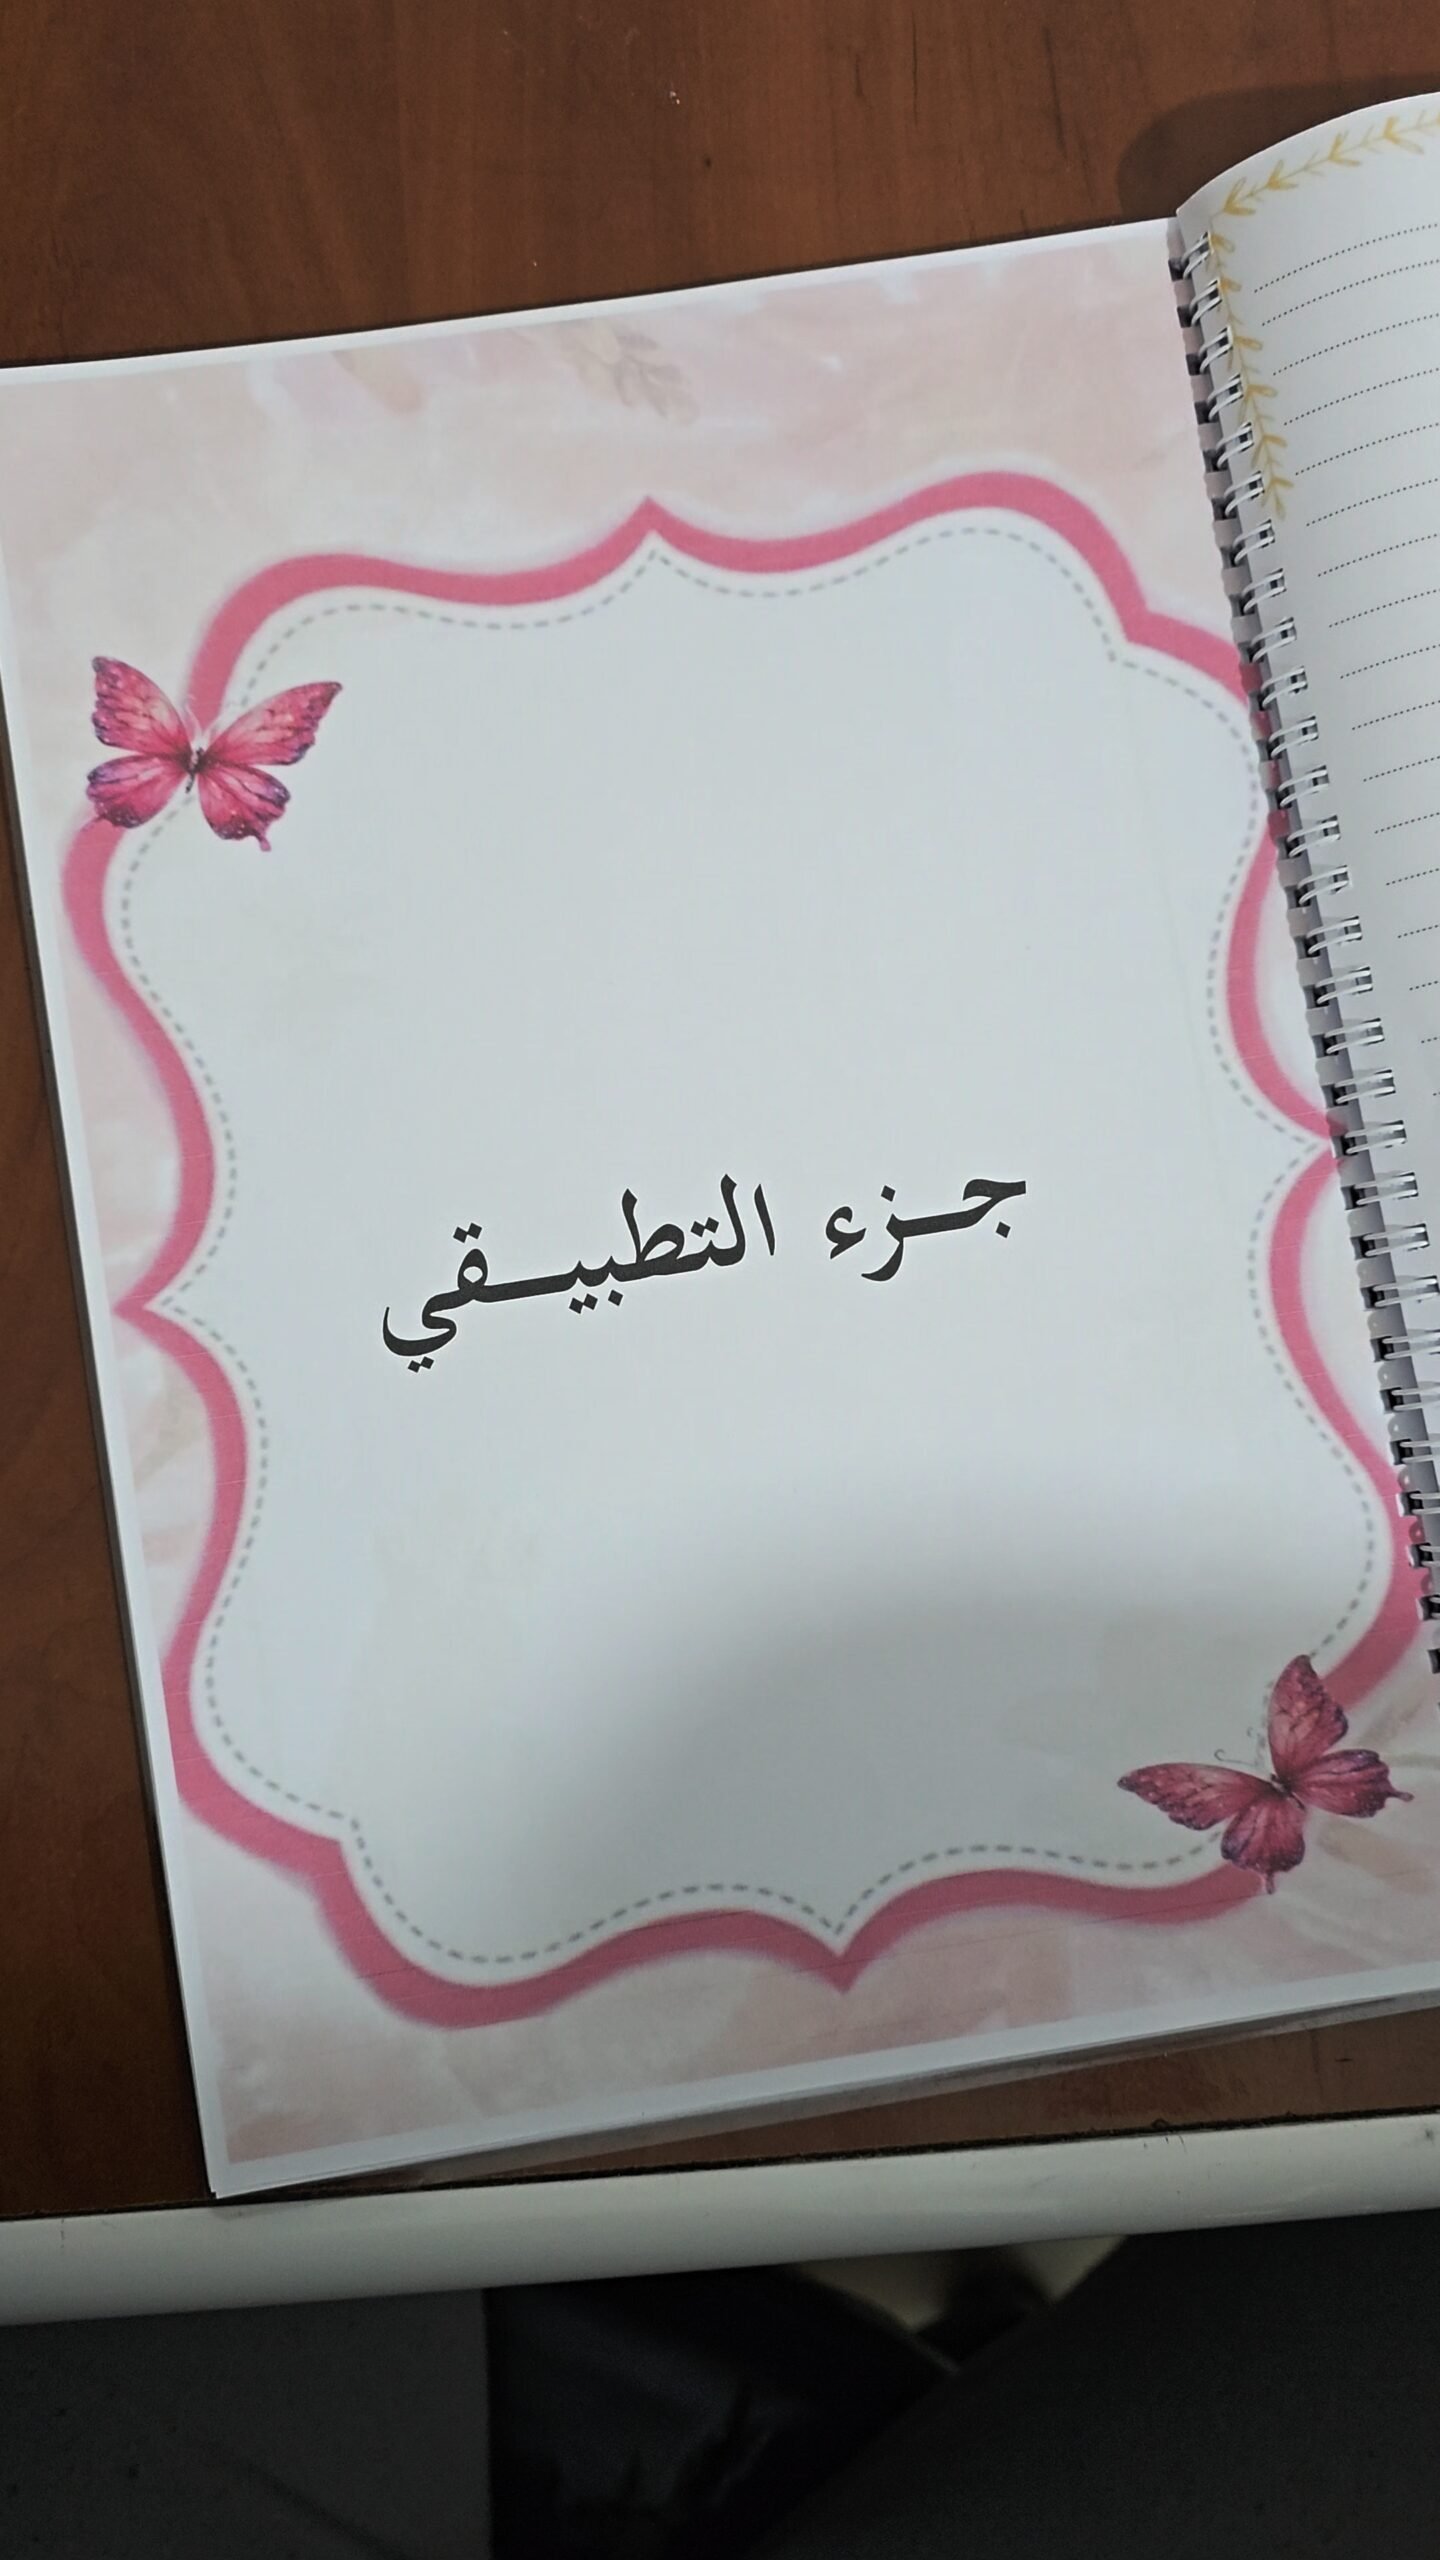 جزء التطبيقي